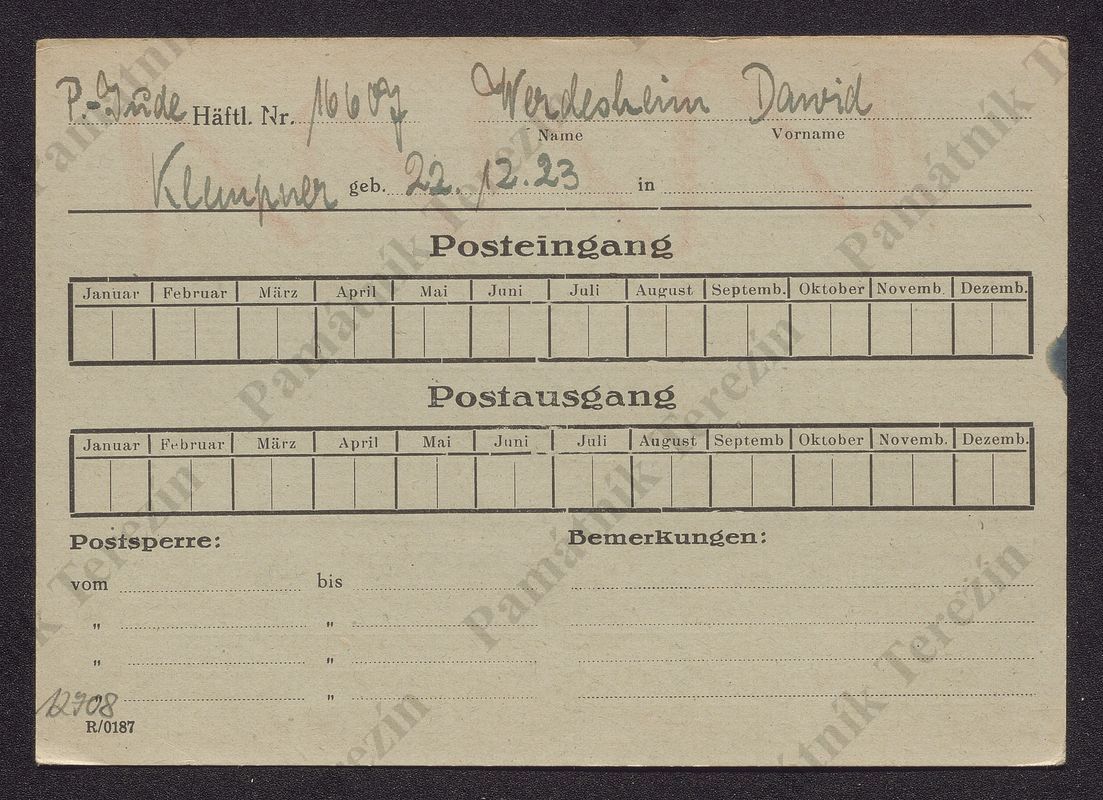 P.-Jude Häftl. Nr. 16607 Werdesheim Dawid
Name Vorname
Klempner geb. 22. 12. 23 in
Posteingang
Januar Februar März April Mai Juni Juli August Septemb. Oktober Novemb. Dezemb.
Postausgang
Januar Februar März April Mai Juni Juli August Septemb Oktober Novemb. Dezemb.
Postsperre: Bemerkungen:
vom bis
" "
" "
" "
12708
R/0187
Památník Terezín